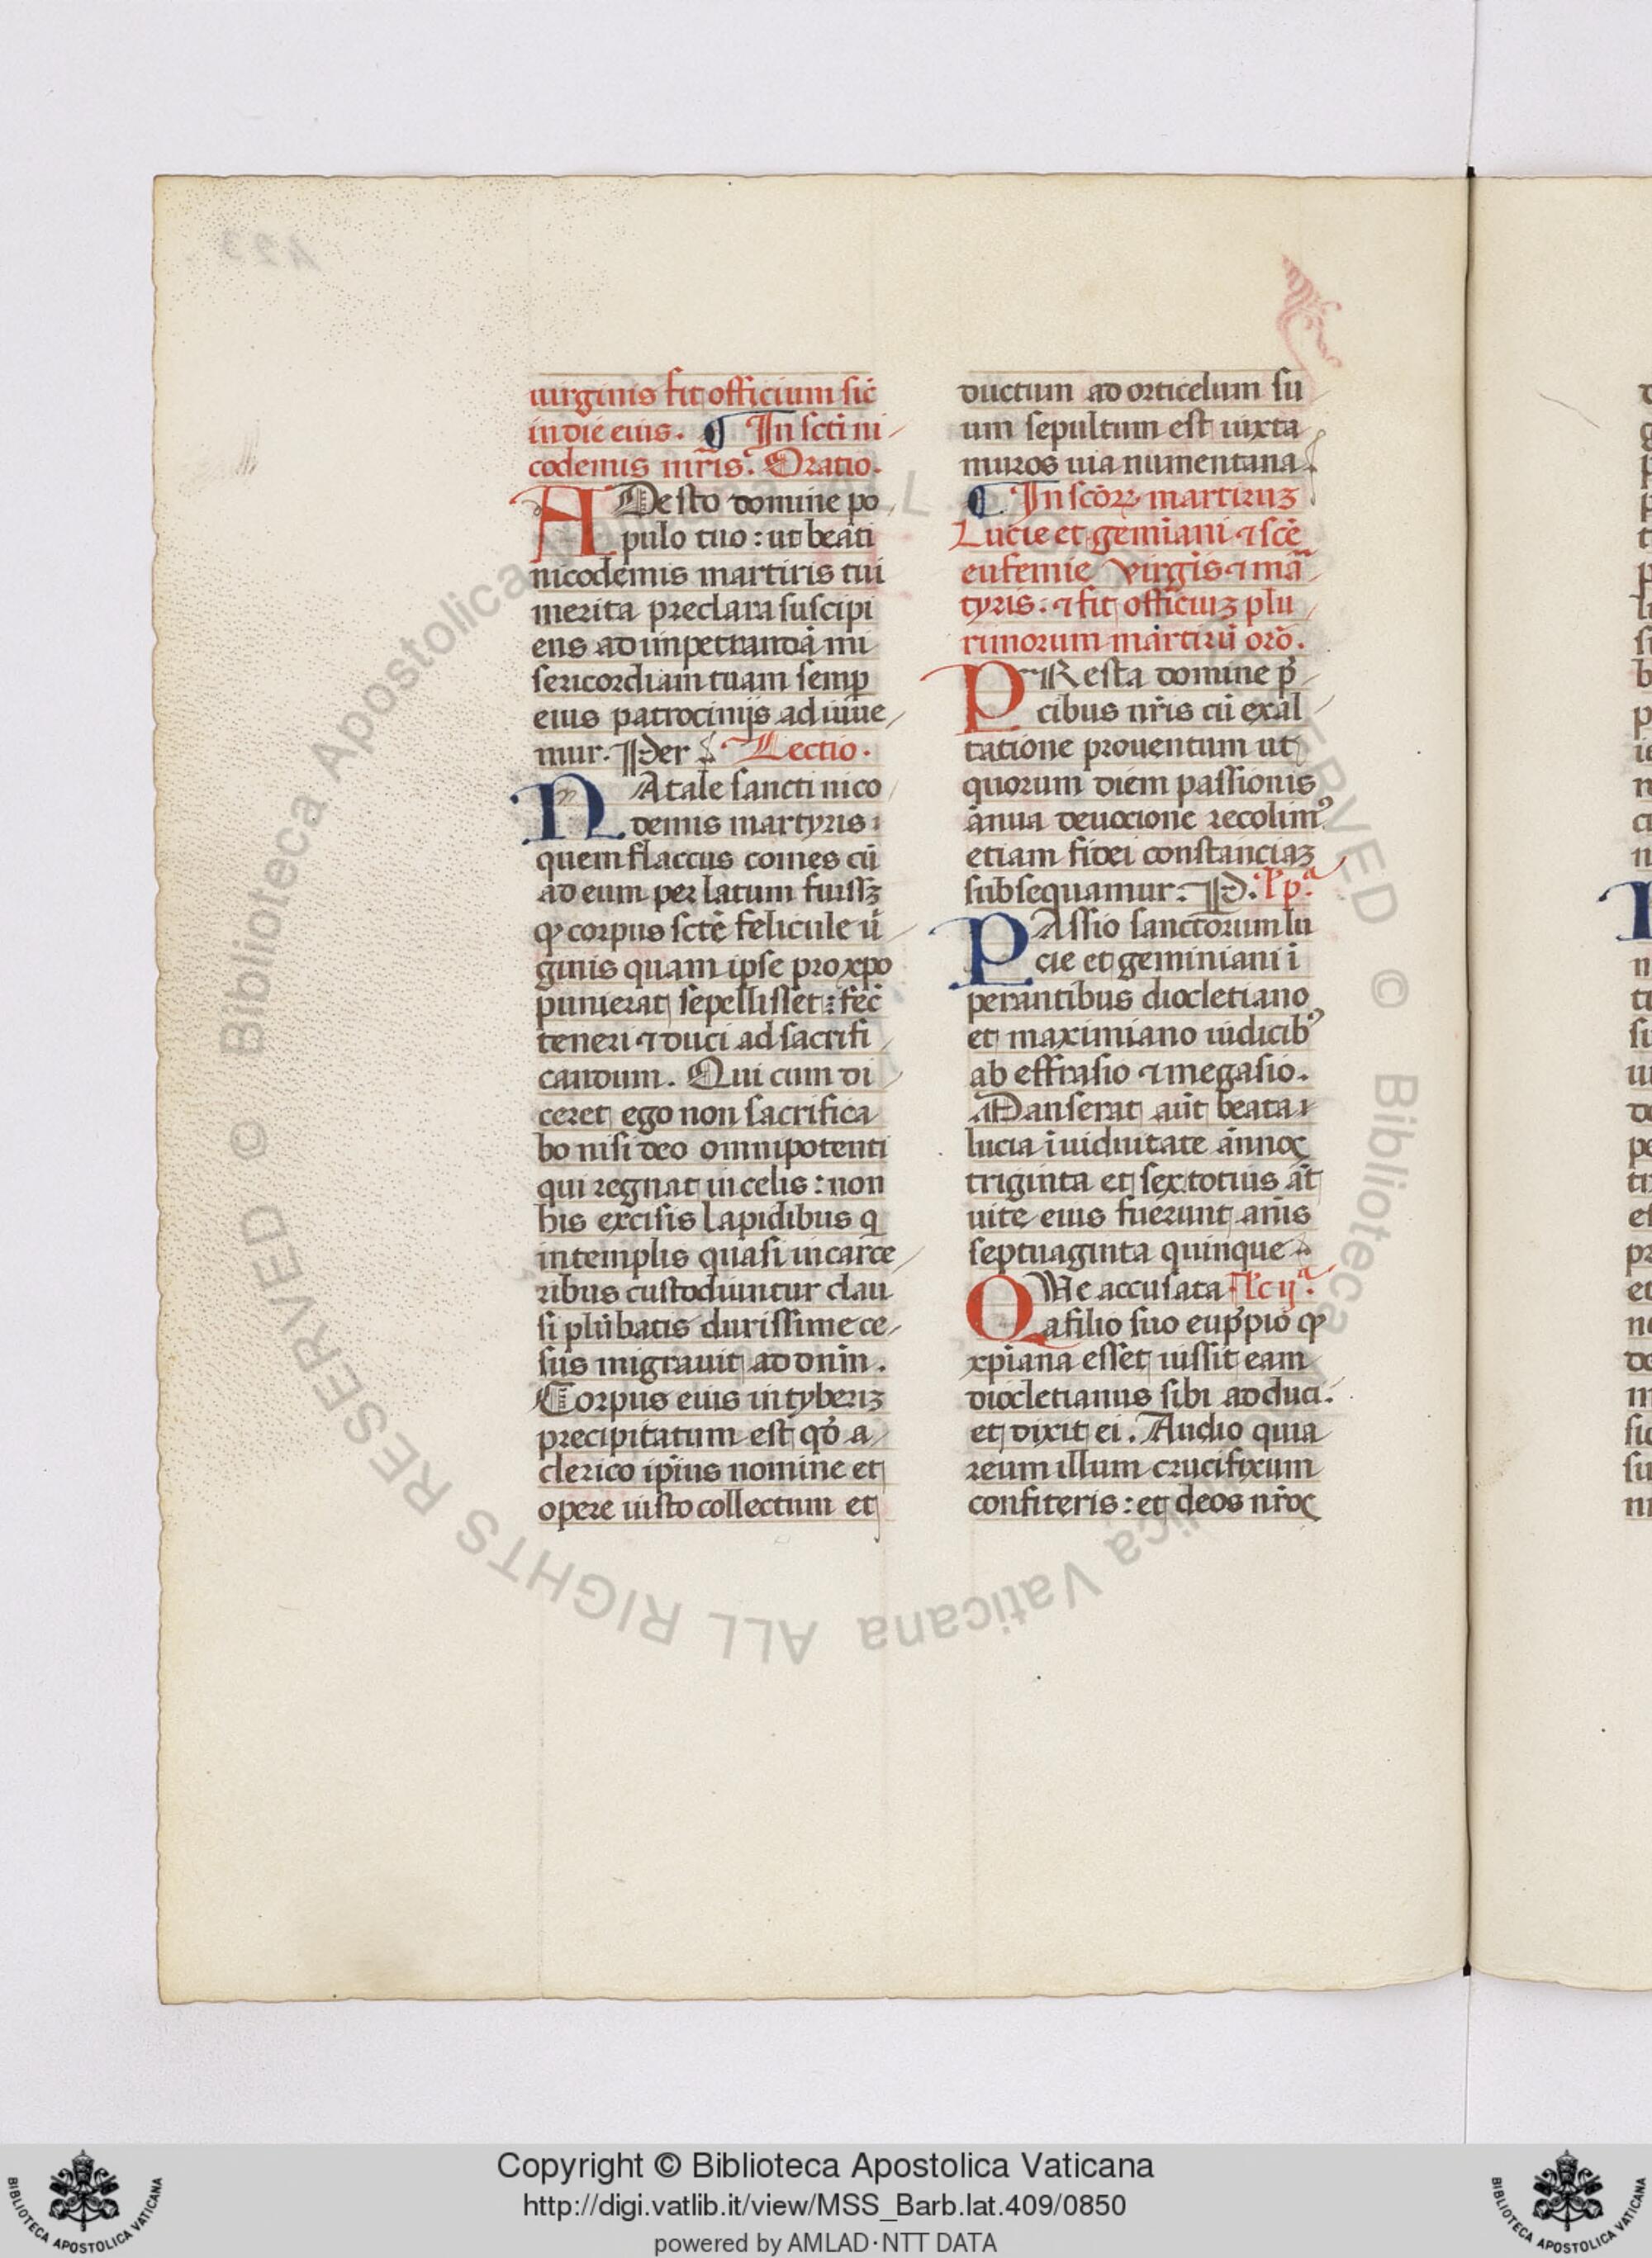 uirginis fit officium sic̄
in die eius. ¶ In sc̄ti ni
codemis mr̄is. Oratio.
ADesto domine po
pulo tuo : ut beati
nicodemis martiris tui
merita preclara suscipi
ens ad impetrandā mi
sericordiam tuam semꝑ
eius patrocinijs ad iuue
mur. Per Lectio.
NAtale sancti nico
demis martyris
quem flaccus comes cū
ad eum per latum fuissꝫ
ꝙ corpus sctē felicule ũ
ginis quam ipse pro xp̄o
punierat sepellisset : fec̄
teneri ⁊ duci ad sacrifi
candum. Qui cum di
ceret ego non sacrifica
bo nisi deo omnipotenti
qui regnat in celis : non
his excisis lapidibus q
in templis quasi in carce
ribus custodiuntur clau
si plūbatis durissime ce
sus migrauit ad dnm̄.
Corpus eius in tyberiꝫ
precipitatum est qd̄ a
clerico ip̄ius nomine et
opere iusto collectum et
ductum ad orticelum su
um sepultum est iuxta
muros uia numentana
¶ In scōꝝ martiruꝫ
Lucie et geminiani ⁊ scē
eufemie virgīs ⁊ mā
tyris. ⁊ fit officiuꝫ plu
rimorum martirū orō.
PResta domine p̄
cibus nr̄is cū exal
tatione prouentum ut
quorum diem passionis
ānua deuocione recolimꝰ
etiam fidei constanciaꝫ
subsequamur. P. Lp.ª
PAssio sanctorum lu
cie et geminiani ī
perantibus diocletiano
et maximiano iudicibꝰ
ab effrasio ⁊ megasio.
Manserat aūt beata
lucia ī uiduitate ānoꝝ
triginta et sex totius āt
uite eius fuerunt anīs
septuaginta quinque
QVe accusata Lc ijª.
a filio suo eup̄pio ꝙ
xp̄iana esset iussit eam
diocletianus sibi adduci.
et dixit ei. Audio quia
reum illum crucifixum
confiteris : et deos nr̄oꝝ
Copyright © Biblioteca Apostolica Vaticana
http://digi.vatlib.it/view/MSS_Barb.lat.409/0850
powered by AMLAD·NTT DATA